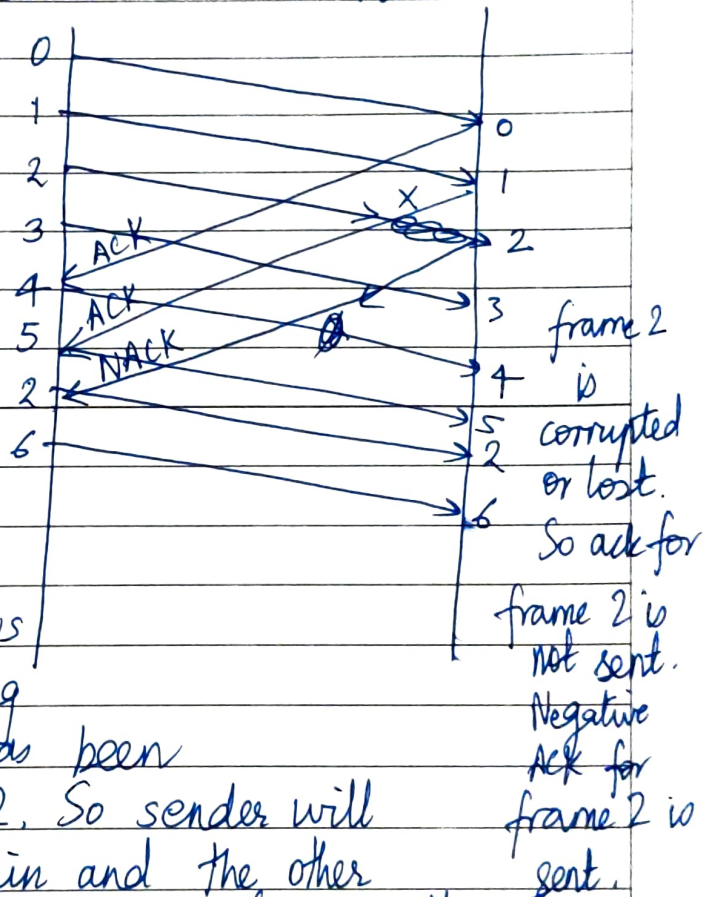 0
0
1
1
2
X
2
3
ACK
3
4
ACK
4
5
NACK
5
2
2
6
6
frame 2
is
corrupted
or lost.
So ack for
frame 2 is
not sent.
Negative
Ack for
frame 2 is
sent.
s
g
as been
2. So sender will
in and the other